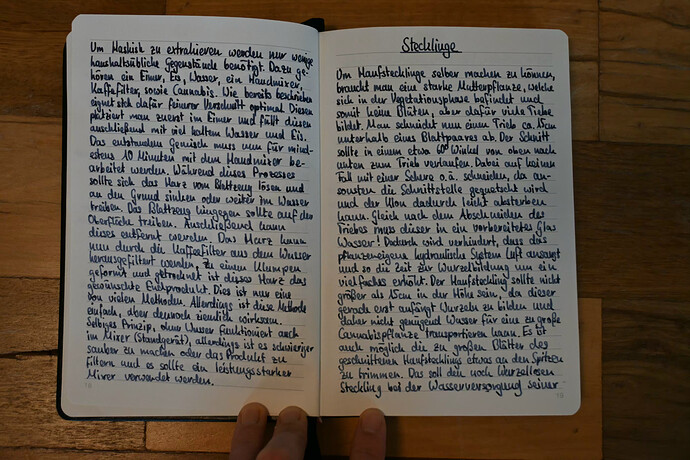 Um Hashish zu extrahieren werden nur wenige
haushaltsübliche Gegenstände benötigt. Dazu ge-
hören ein Eimer, Eis, Wasser, ein Handmixer,
Kaffeefilter, sowie Cannabis. Wie bereits beschrieben
eignet sich dafür feinerer Verschnitt optimal. Diesen
platziert man zuerst im Eimer und füllt diesen
anschließend mit viel kaltem Wasser und Eis.
Das entstandene Gemisch muss nun für mind-
estens 10 Minuten mit dem Handmixer be-
arbeitet werden. Während dieses Prozesses
sollte sich das Harz vom Blattzeug lösen und
an den Grund sinken oder weiter im Wasser
treiben. Das Blattzeug hingegen sollte auf der
Oberfläche treiben. Anschließend kann
dieses entfernt werden. Das Harz kann
nun durch die Kaffeefilter aus dem Wasser
herausgefiltert werden, zu einem Klumpen
geformt und getrocknet ist dieses Harz das
gewünschte Endprodukt. Dies ist nur eine
von vielen Methoden. Allerdings ist diese Methode
einfach, aber dennoch ziemlich wirksam.
Selbiges Prinzip, ohne Wasser funktioniert auch
im Mixer (Standgerät), allerdings ist es schwieriger
sauber zu machen oder das Produkt zu
filtern und es sollte ein leistungsstarker
Mixer verwendet werden.
18
Stecklinge
Um Hanfstecklinge selber machen zu können,
braucht man eine starke Mutterpflanze, welche
sich in der Vegetationsphase befindet und
somit keine Blüten, aber dafür viele Triebe
bildet. Man schneidet nun einen Trieb ca. 15cm
unterhalb eines Blattpaares ab. Der Schnitt
sollte in einem etwa 60° Winkel von oben nach
unten zum Trieb verlaufen. Dabei auf keinen
Fall mit einer Schere o.ä. schneiden, da an-
sonsten die Schnittstelle gequetscht wird
und der Klon dadurch leicht absterben
kann. Gleich nach dem Abschneiden des
Triebes muss dieser in ein vorbereitetes Glas
Wasser! Dadurch wird verhindert, dass das
pflanzeneigene hydraulische System Luft ansaugt
und so die Zeit zur Wurzelbildung um ein
vielfaches erhöht. Der Hanfsteckling sollte nicht
größer als 15cm in der Höhe sein, da dieser
gerade erst anfängt Wurzeln zu bilden und
daher nicht genügend Wasser für eine zu große
Cannabispflanze transportieren kann. Es ist
auch möglich die zu großen Blätter des
geschnittenen Hanfstecklings etwas an den Spitzen
zu trimmen. Das soll den noch Wurzellosen
Steckling bei der Wasserversorgung seiner
19